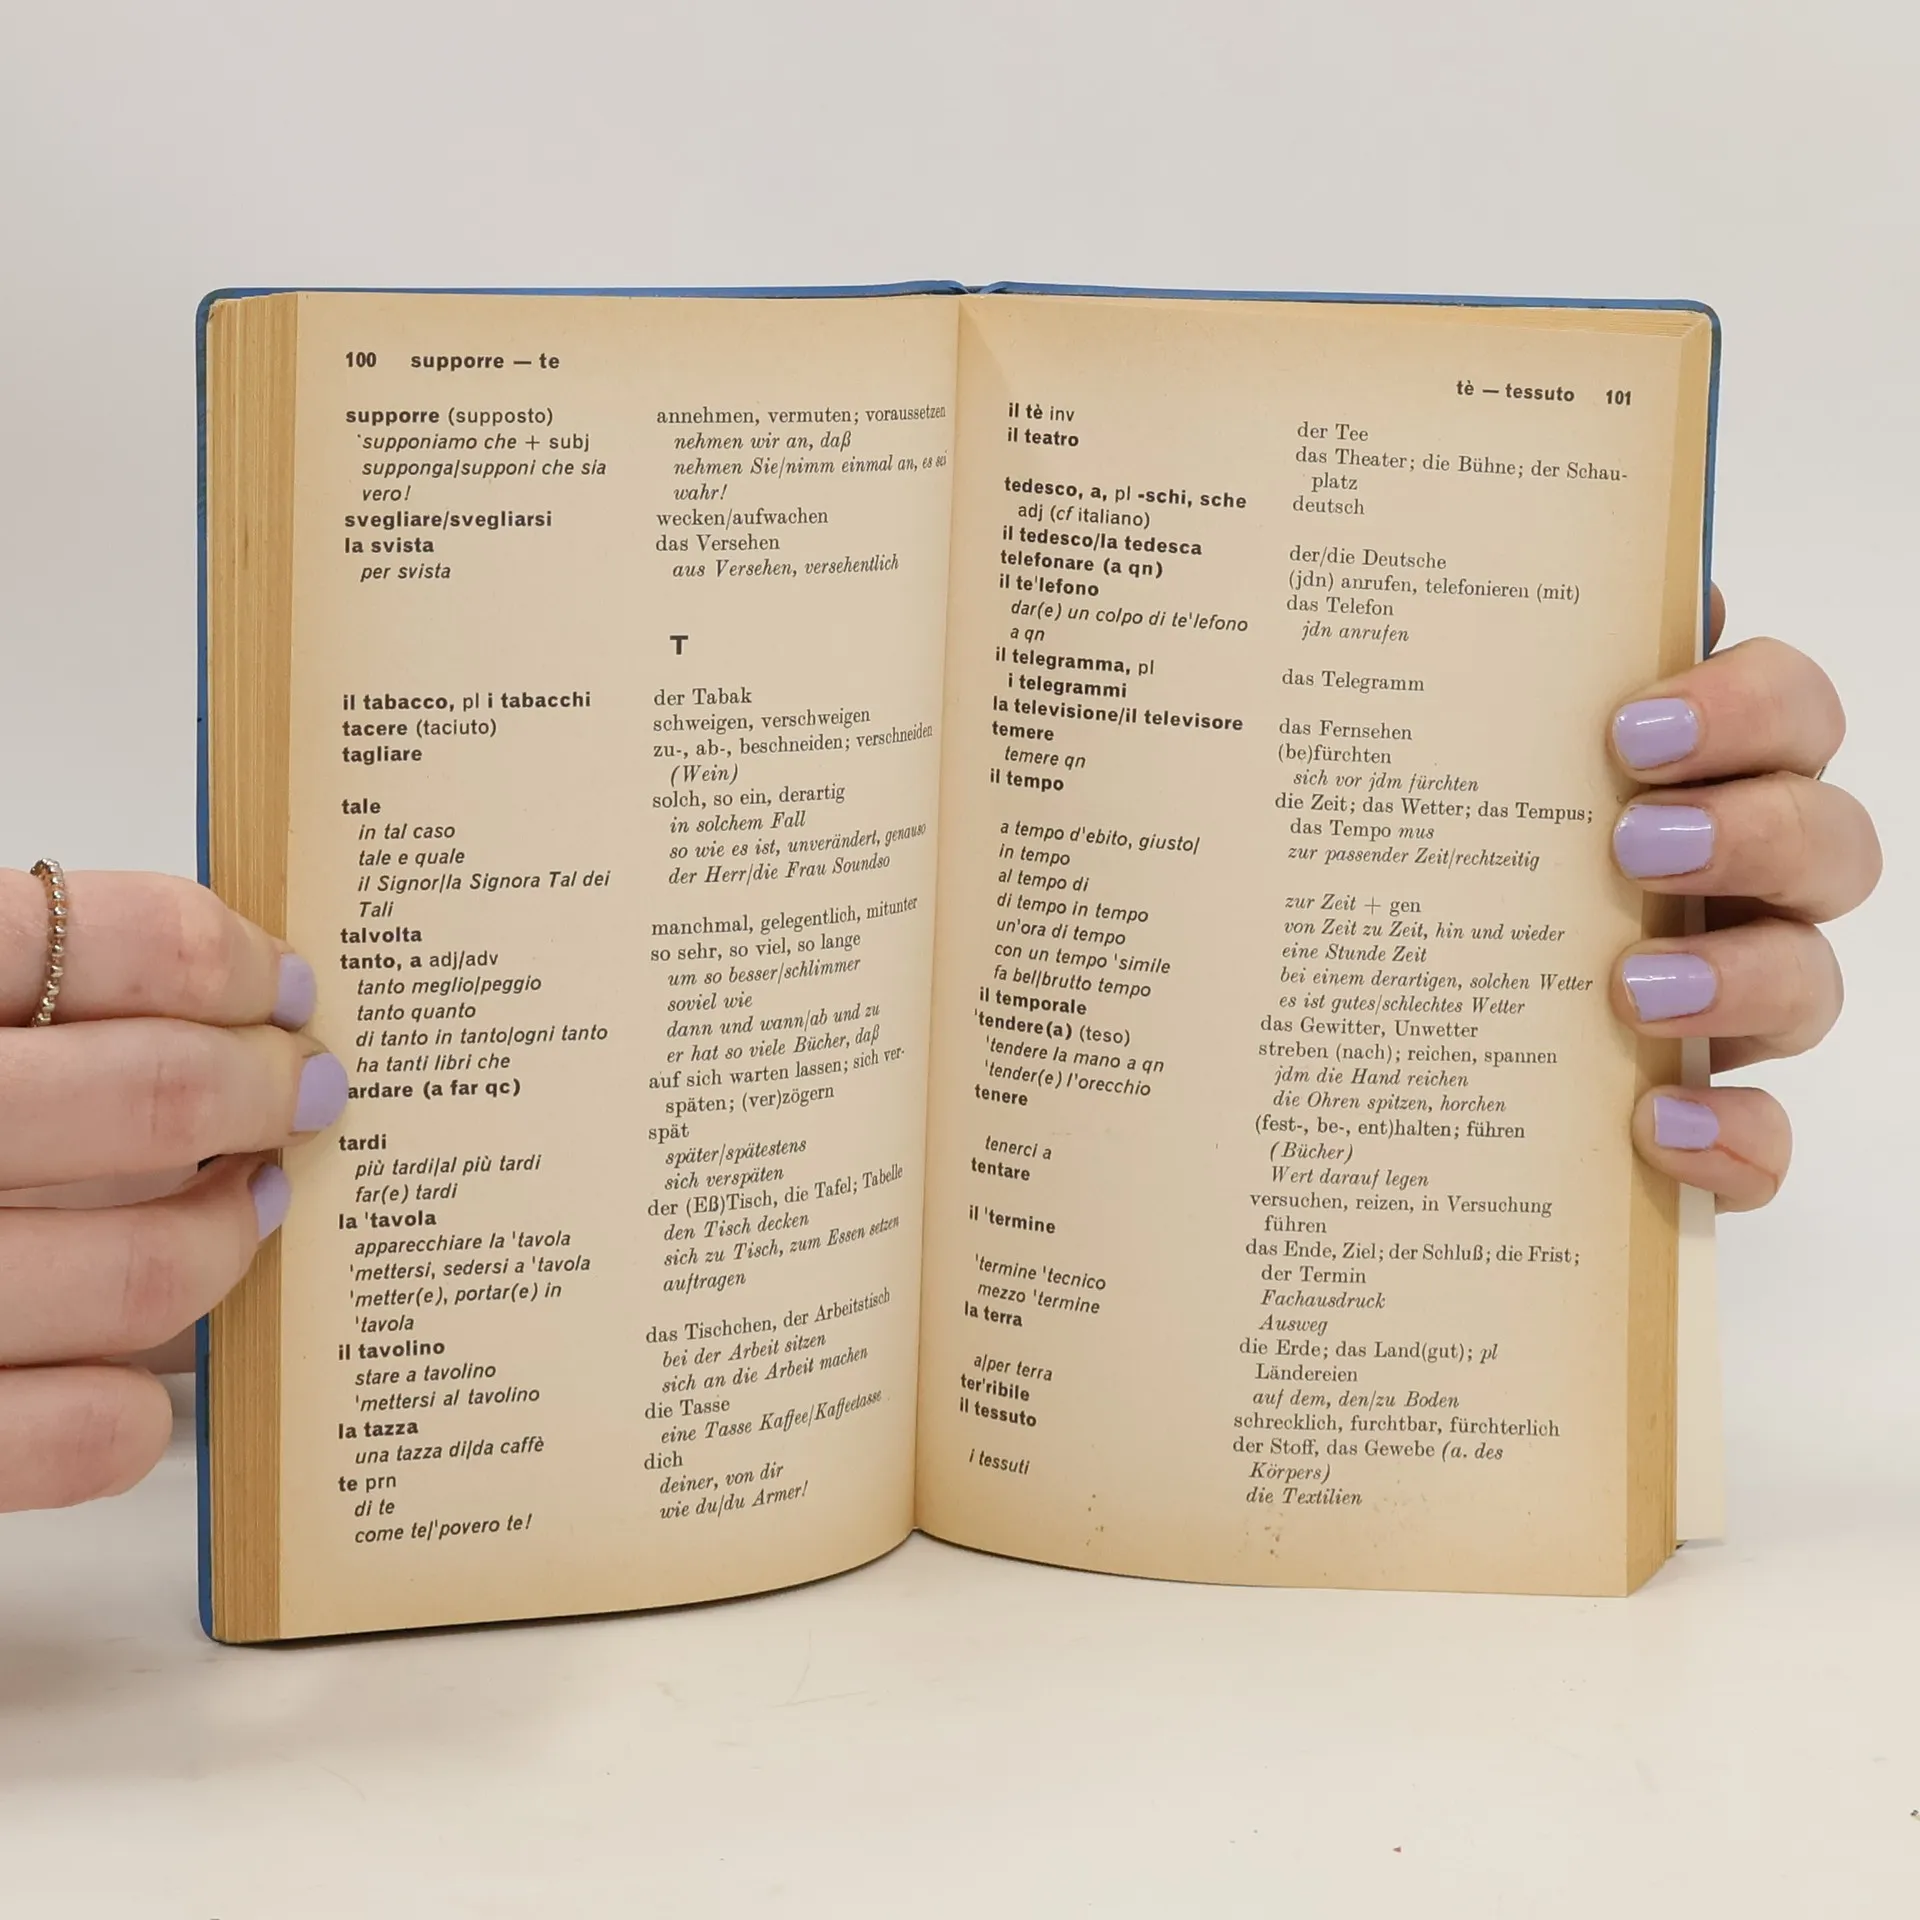 100 supporre — te
supporre (supposto) annehmen, vermuten; voraussetzen
'supponiamo che + subj nehmen wir an, daß
supponga/supponi che sia nehmen Sie/nimm einmal an, es sei
vero! wahr!
svegliare/svegliarsi wecken/aufwachen
la svista das Versehen
per svista aus Versehen, versehentlich
T
il tabacco, pl i tabacchi der Tabak
tacere (taciuto) schweigen, verschweigen
tagliare zu-, ab-, beschneiden; verschneiden
(Wein)
tale solch, so ein, derartig
in tal caso in solchem Fall
tale e quale so wie es ist, unverändert, genauso
il Signor/la Signora Tal dei der Herr/die Frau Soundso
Tali
talvolta manchmal, gelegentlich, mitunter
tanto, a adj/adv so sehr, so viel, so lange
tanto meglio/peggio um so besser/schlimmer
tanto quanto soviel wie
di tanto in tanto/ogni tanto dann und wann/ab und zu
ha tanti libri che er hat so viele Bücher, daß
ardare (a far qc) auf sich warten lassen; sich ver-
späten; (ver)zögern
tardi spät
più tardi/al più tardi später/spätestens
far(e) tardi sich verspäten
la 'tavola der (Eß)Tisch, die Tafel; Tabelle
apparecchiare la 'tavola den Tisch decken
'mettersi, sedersi a 'tavola sich zu Tisch, zum Essen setzen
'metter(e), portar(e) in auftragen
'tavola
il tavolino das Tischchen, der Arbeitstisch
stare a tavolino bei der Arbeit sitzen
'mettersi al tavolino sich an die Arbeit machen
la tazza die Tasse
una tazza di/da caffè eine Tasse Kaffee/Kaffeetasse
te prn dich
di te deiner, von dir
come te/'povero te! wie du/du Armer!
tè — tessuto 101
il tè inv der Tee
il teatro das Theater; die Bühne; der Schau-
platz
tedesco, a, pl -schi, sche deutsch
adj (cf italiano)
il tedesco/la tedesca der/die Deutsche
telefonare (a qn) (jdn) anrufen, telefonieren (mit)
il te'lefono das Telefon
dar(e) un colpo di te'lefono jdn anrufen
a qn
il telegramma, pl das Telegramm
i telegrammi
la televisione/il televisore das Fernsehen
temere (be)fürchten
temere qn sich vor jdm fürchten
il tempo die Zeit; das Wetter; das Tempus;
das Tempo mus
a tempo d'ebito, giusto/ zur passender Zeit/rechtzeitig
in tempo
al tempo di zur Zeit + gen
di tempo in tempo von Zeit zu Zeit, hin und wieder
un'ora di tempo eine Stunde Zeit
con un tempo 'simile bei einem derartigen, solchen Wetter
fa bel/brutto tempo es ist gutes/schlechtes Wetter
il temporale das Gewitter, Unwetter
'tendere(a) (teso) streben (nach); reichen, spannen
'tendere la mano a qn jdm die Hand reichen
'tender(e) l'orecchio die Ohren spitzen, horchen
tenere (fest-, be-, ent)halten; führen
(Bücher)
tenerci a Wert darauf legen
tentare versuchen, reizen, in Versuchung
führen
il 'termine das Ende, Ziel; der Schluß; die Frist;
der Termin
'termine 'tecnico Fachausdruck
mezzo 'termine Ausweg
la terra die Erde; das Land(gut); pl
Ländereien
a/per terra auf dem, den/zu Boden
ter'ribile schrecklich, furchtbar, fürchterlich
il tessuto der Stoff, das Gewebe (a. des
Körpers)
i tessuti die Textilien